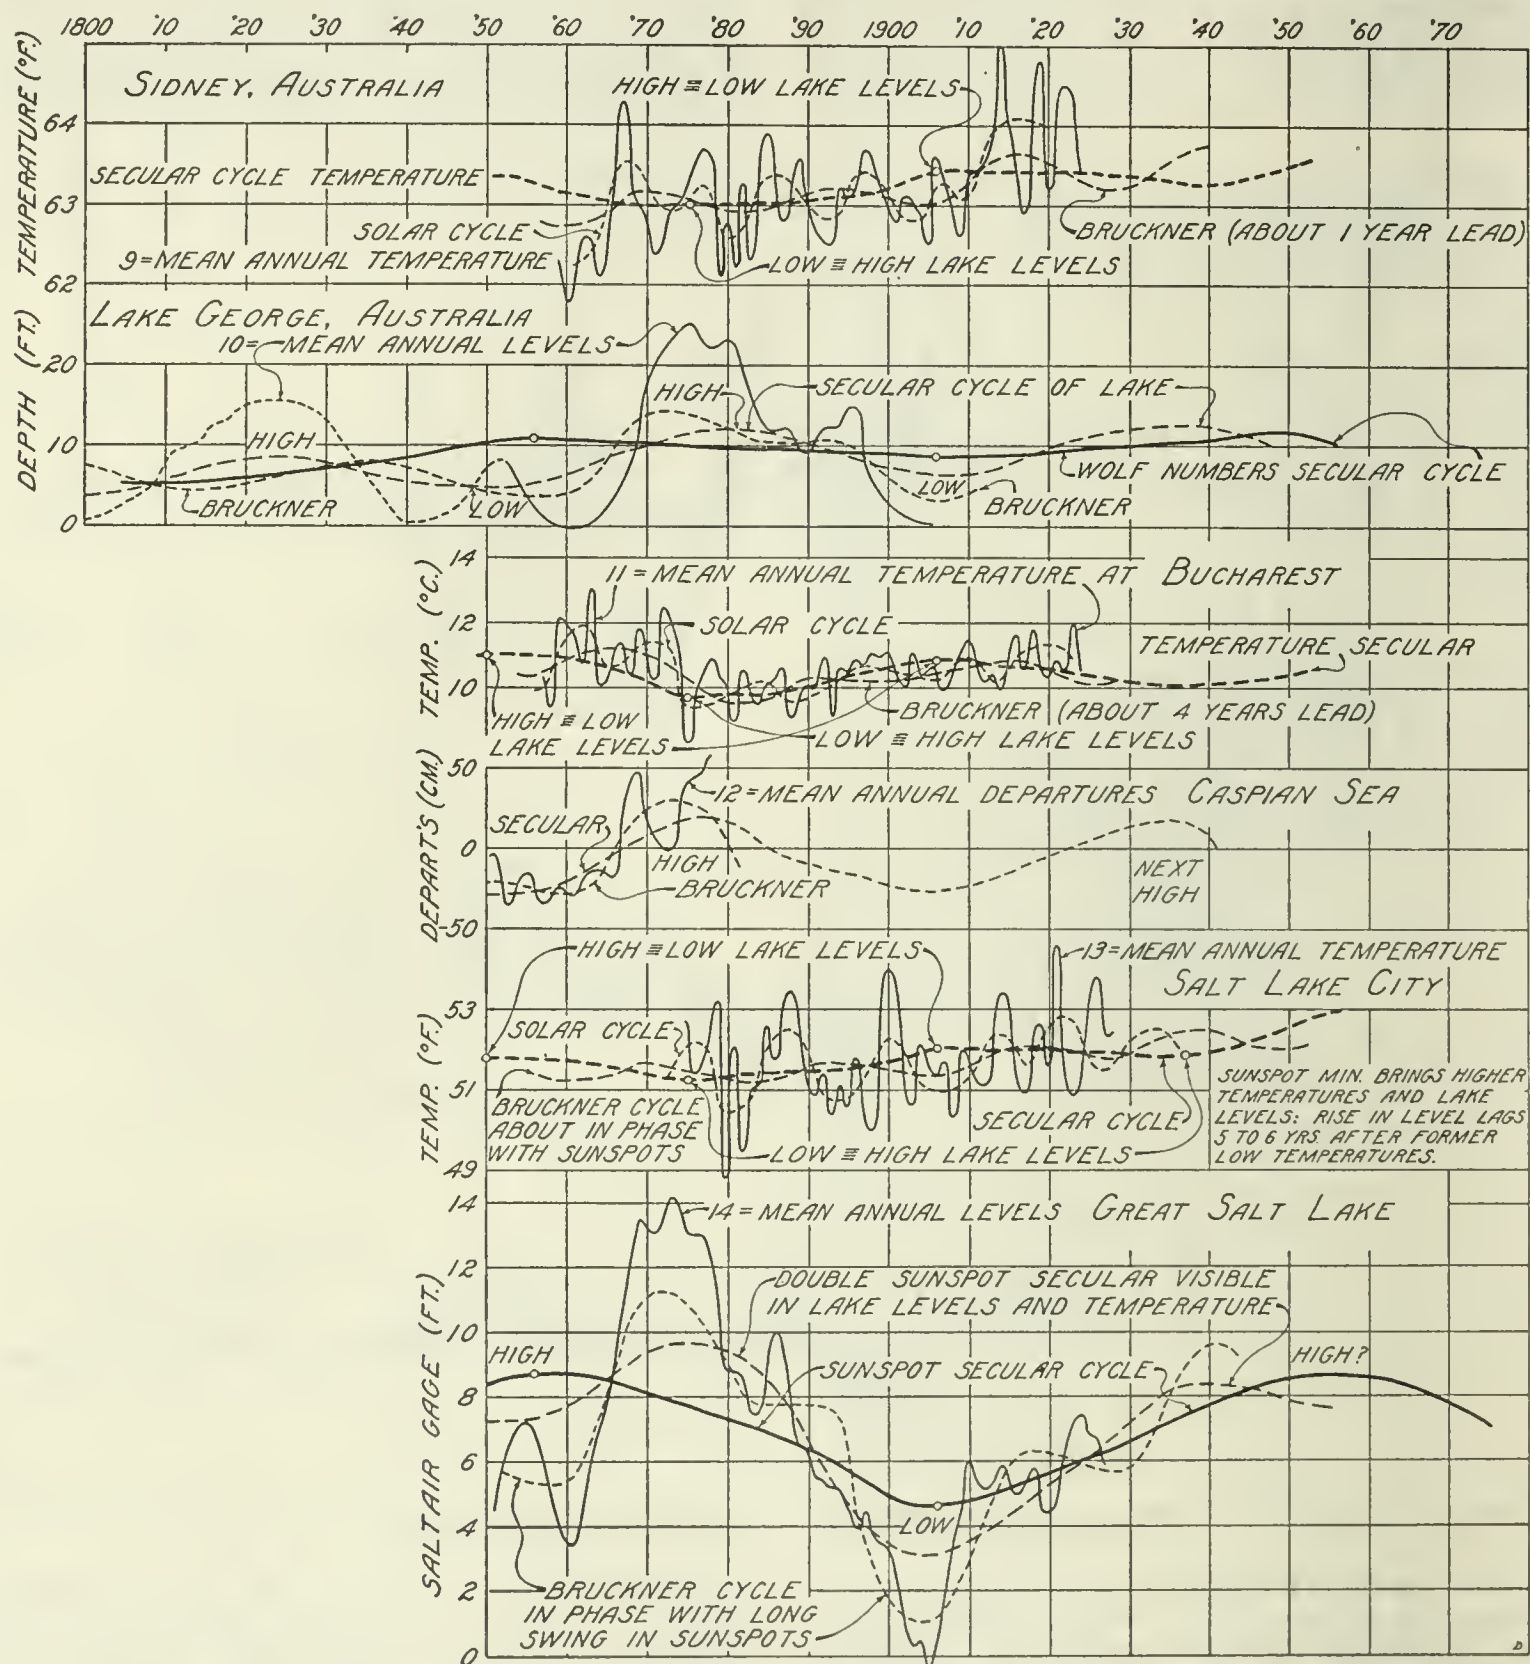 1800 '10 '20 '30 '40 '50 '60 '70 '80 '90 1900 '10 '20 '30 '40 '50 '60 '70
TEMPERATURE (°F.)
64
63
62
SIDNEY, AUSTRALIA
HIGH ≡ LOW LAKE LEVELS
SECULAR CYCLE TEMPERATURE
SOLAR CYCLE
9=MEAN ANNUAL TEMPERATURE
BRUCKNER (ABOUT 1 YEAR LEAD)
LOW ≡ HIGH LAKE LEVELS
DEPTH (FT.)
20
10
0
LAKE GEORGE, AUSTRALIA
10=MEAN ANNUAL LEVELS
HIGH
SECULAR CYCLE OF LAKE
HIGH
WOLF NUMBERS SECULAR CYCLE
BRUCKNER
LOW
LOW
BRUCKNER
TEMP. (°C.)
14
12
10
11=MEAN ANNUAL TEMPERATURE AT BUCHAREST
SOLAR CYCLE
TEMPERATURE SECULAR
BRUCKNER (ABOUT 4 YEARS LEAD)
HIGH ≡ LOW
LAKE LEVELS
LOW ≡ HIGH LAKE LEVELS
DEPART'S (CM.)
50
0
-50
12=MEAN ANNUAL DEPARTURES CASPIAN SEA
SECULAR
HIGH
BRUCKNER
NEXT
HIGH
TEMP. (°F.)
53
51
49
HIGH ≡ LOW LAKE LEVELS
13=MEAN ANNUAL TEMPERATURE
SALT LAKE CITY
SOLAR CYCLE
BRUCKNER CYCLE
ABOUT IN PHASE
WITH SUNSPOTS
SECULAR CYCLE
LOW ≡ HIGH LAKE LEVELS
SUNSPOT MIN. BRINGS HIGHER
TEMPERATURES AND LAKE
LEVELS: RISE IN LEVEL LAGS
5 TO 6 YRS. AFTER FORMER
LOW TEMPERATURES.
SALTAIR GAGE (FT.)
14
12
10
8
6
4
2
0
14=MEAN ANNUAL LEVELS GREAT SALT LAKE
DOUBLE SUNSPOT SECULAR VISIBLE
IN LAKE LEVELS AND TEMPERATURE
HIGH
SUNSPOT SECULAR CYCLE
HIGH?
LOW
BRUCKNER CYCLE
IN PHASE WITH LONG
SWING IN SUNSPOTS
D